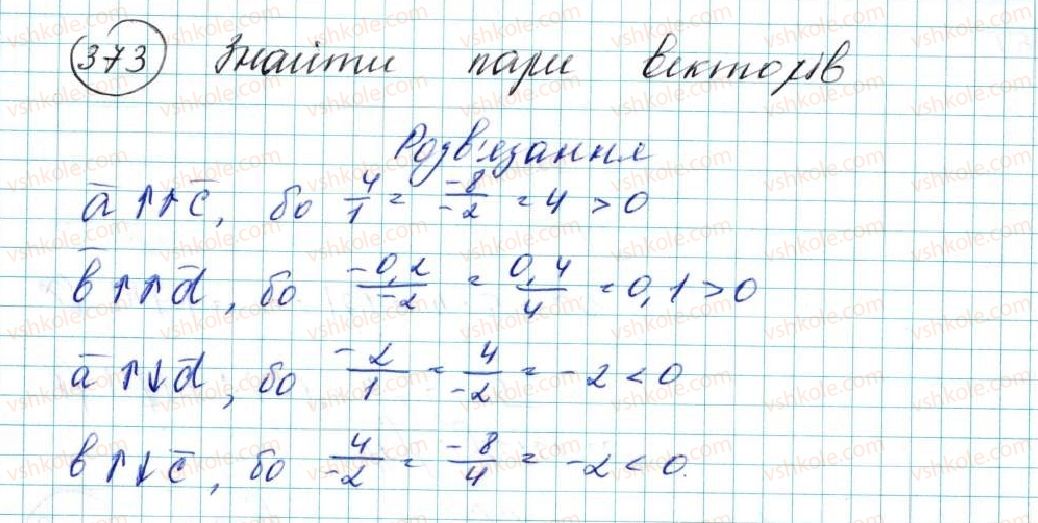 373 Знайти пари векторів
Розв'язання
a̅ ↑↑ c̅, бо 4/1 = -8/-2 = 4 > 0
b̅ ↑↑ d̅, бо -0,2/-2 = 0,4/4 = 0,1 > 0
a̅ ↑↓ d̅, бо -2/1 = 4/-2 = -2 < 0
b ↑↓ c̅, бо 4/-2 = -8/4 = -2 < 0.